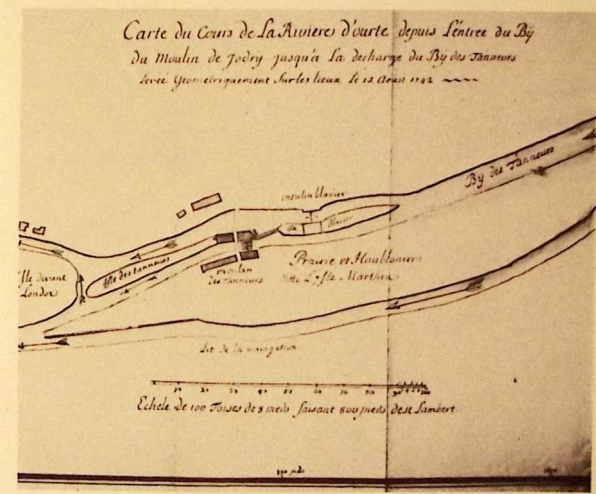 Carte du Cours de La Rivieres d'ourte depuis L'entree du Bÿ
du Moulin de Jodrÿ jusqu'a La decharge du By des Tanneurs
Levée Geometriquement Sur les lieux le 12 Aoust 1742
By des Tanneurs
moulin blavier
Isle des tanneurs
moulin
des Tanneurs
Prairie et Houblonieres
ditte L'Isle Marthea
Isle devant
London
Lit de la navigation
Echele de 100 Toises de 8 pieds faisant 800 pieds de st Lambert